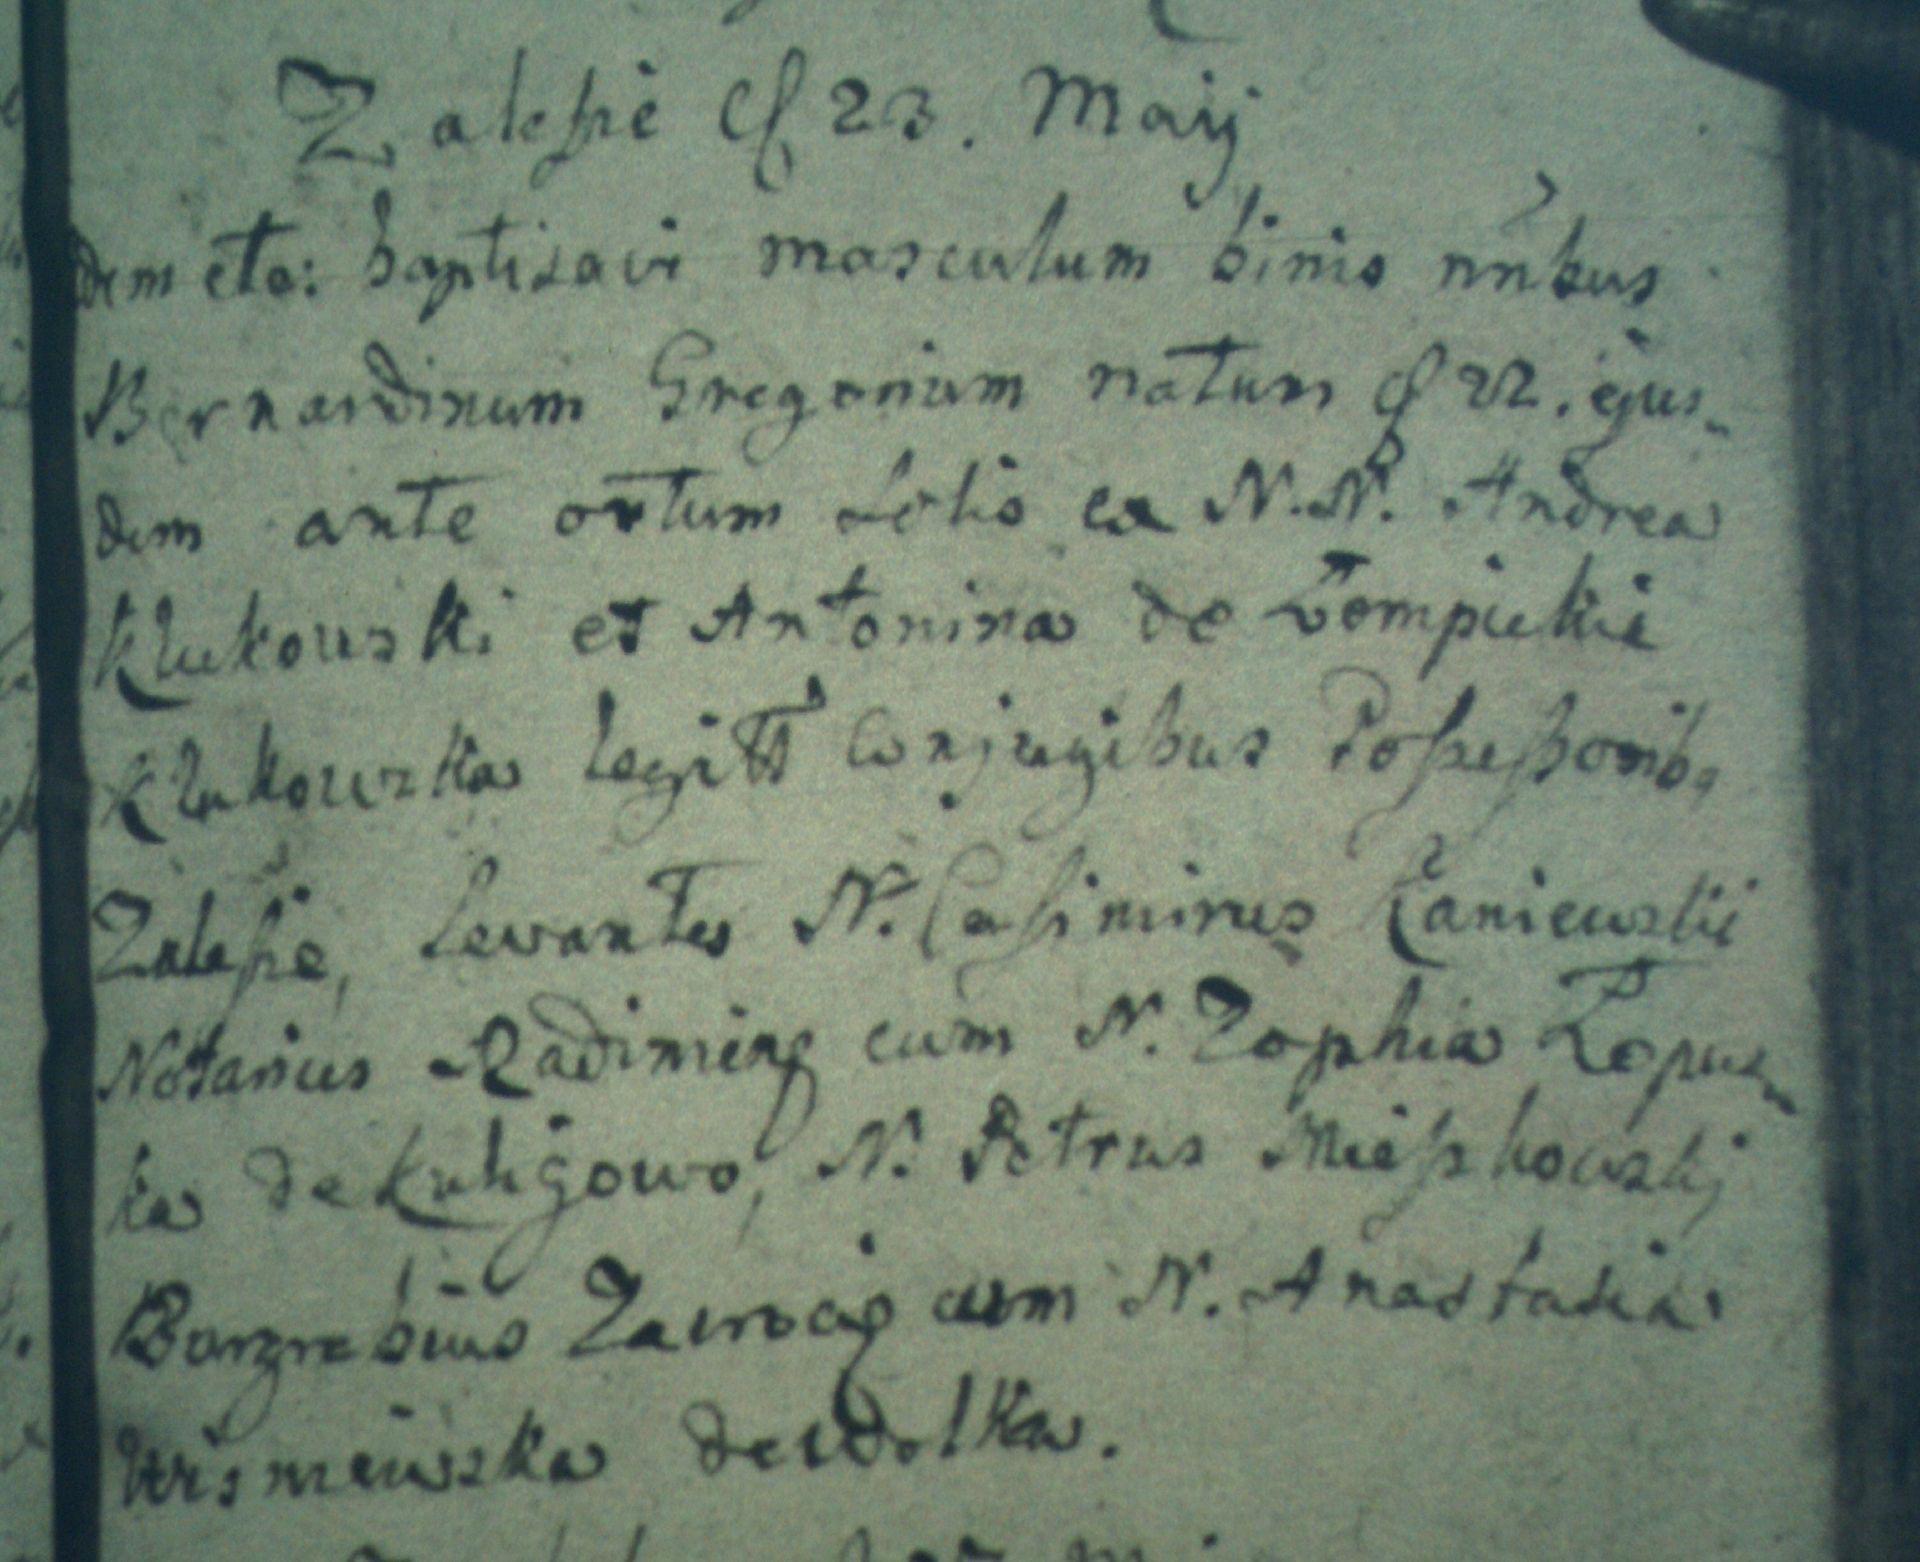 Zalesie d 23. Maij
dem etc: baptisavi masculum binis nnibus
Bernardinum Gregorium natum d 22. ejus-
dem ante ortum Solis ex N.N. Andrea
Klukowski et Antonina de Łempickie
Klukowska legitt Conjugibus Possessorib9
Zalesie, Levantes N. Casimirus Kaniewskii
Notarius Radimins cum N. Zophia Łepus-
ka de Kuligowo, N. Petrus Mieszkowskj
Burgrabius cum N. Anastasia
Wisniewska de